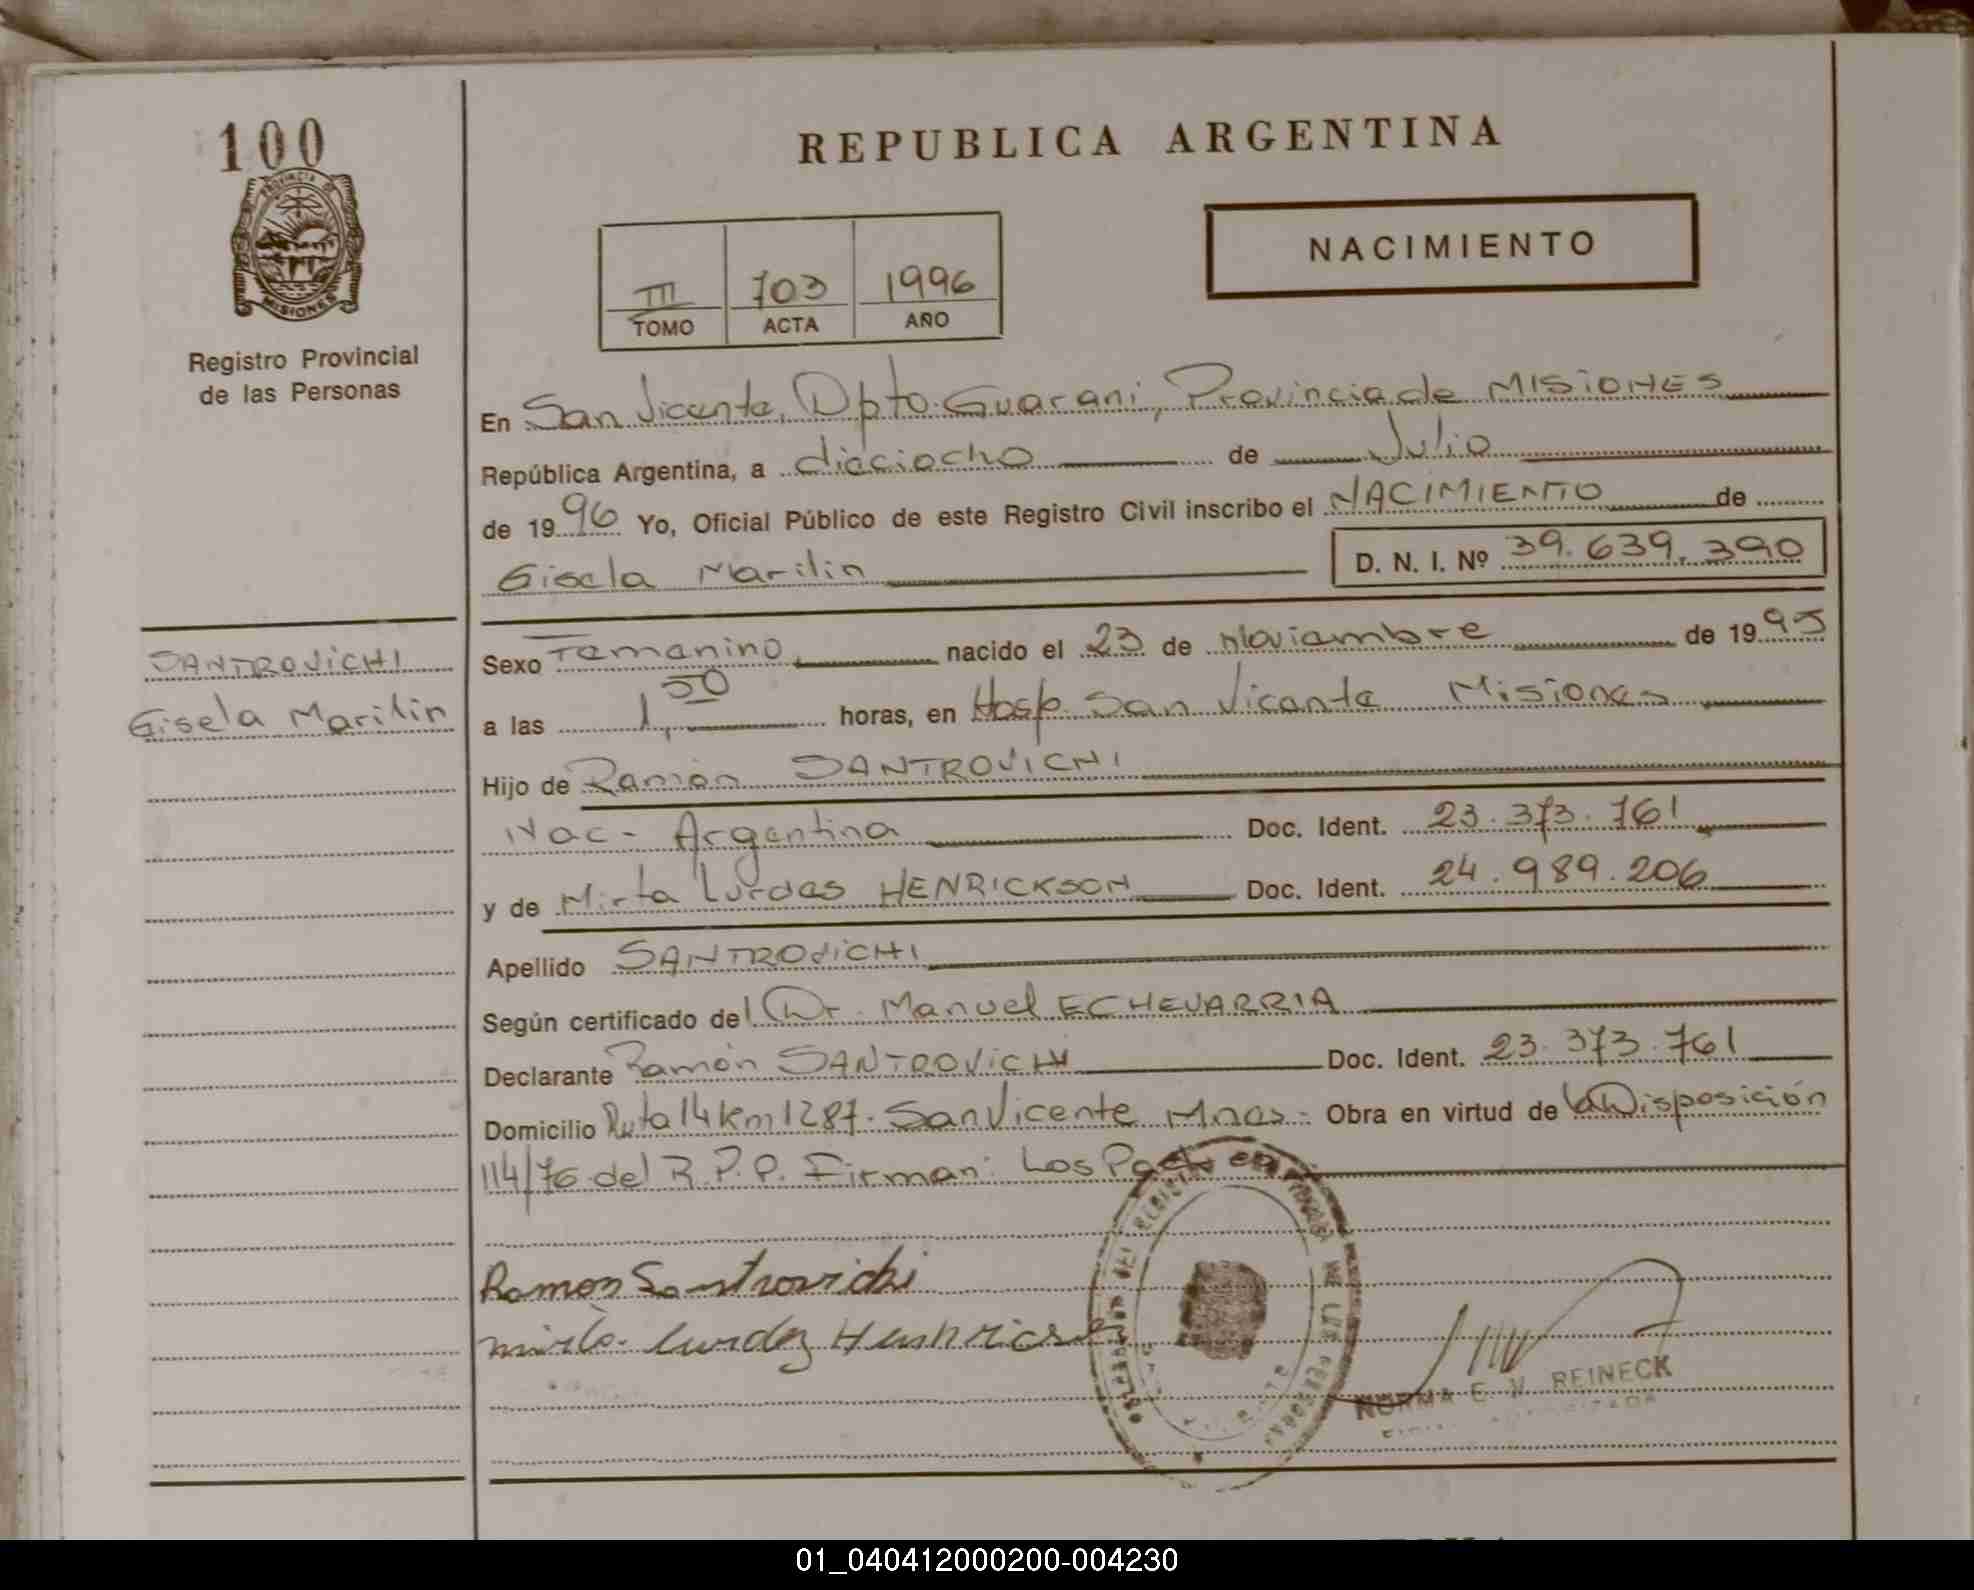 100
PROVINCIA DE
MISIONES
Registro Provincial
de las Personas
REPUBLICA ARGENTINA
NACIMIENTO
III 703 1996
TOMO ACTA AÑO
En San Vicente, Dpto. Guarani, Provincia de MISIONES
República Argentina, a dieciocho de Julio
de 1996 Yo, Oficial Público de este Registro Civil inscribo el NACIMIENTO de
Gisela Marilin D. N. I. Nº 39.639.390
SANTROVICHI
Gisela Marilin
Sexo Femenino nacido el 23 de Noviembre de 1995
a las 1,50 horas, en Hosp. San Vicente Misiones
Hijo de Ramón SANTROVICHI
Nac- Argentina Doc. Ident. 23.373.761
y de Mirta Lurdes HENRICKSON Doc. Ident. 24.989.206
Apellido SANTROVICHI
Según certificado del Dr. Manuel ECHEVARRIA
Declarante Ramón SANTROVICHI Doc. Ident. 23.373.761
Domicilio Ruta 14 km 1287. San Vicente Mnes- Obra en virtud de la Disposición
114/76 del R.P.P. Firman: Los
Ramon Santrovichi
mirta lurdez
NORMA E. V. REINECK
01_040412000200-004230